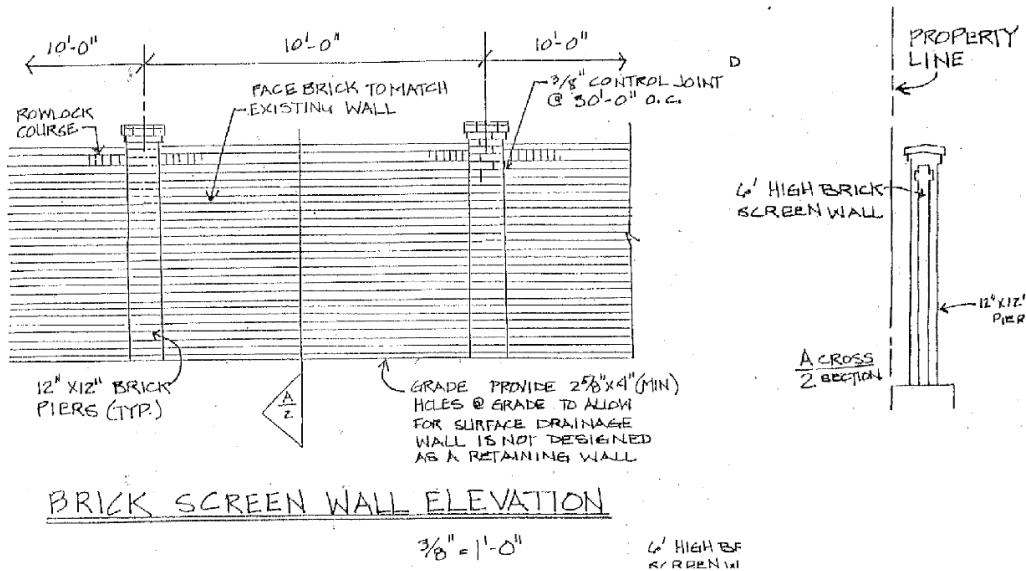 10'-0" 10'-0" 10'-0"
D
PROPERTY
LINE
FACE BRICK TO MATCH
EXISTING WALL
3/8" CONTROL JOINT
@ 30'-0" O.C.
ROWLOCK
COURSE
6' HIGH BRICK
SCREEN WALL
12" X 12"
PIER
A CROSS
2 SECTION
12" X 12" BRICK
PIERS (TYP.)
A
2
GRADE PROVIDE 2 5/8" X 4" (MIN)
HOLES @ GRADE TO ALLOW
FOR SURFACE DRAINAGE
WALL IS NOT DESIGNED
AS A RETAINING WALL
BRICK SCREEN WALL ELEVATION
3/8" = 1'-0"
6' HIGH BR
SCREEN W